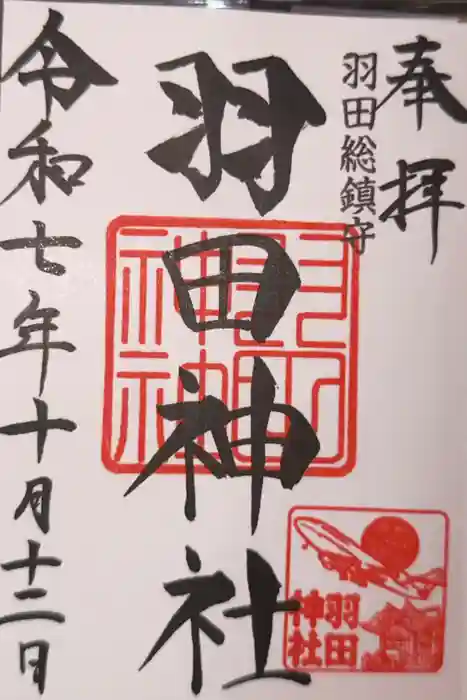 奉拝
羽田総鎮守
羽田神社
令和七年十月十二日
羽田
神社
羽田
神社